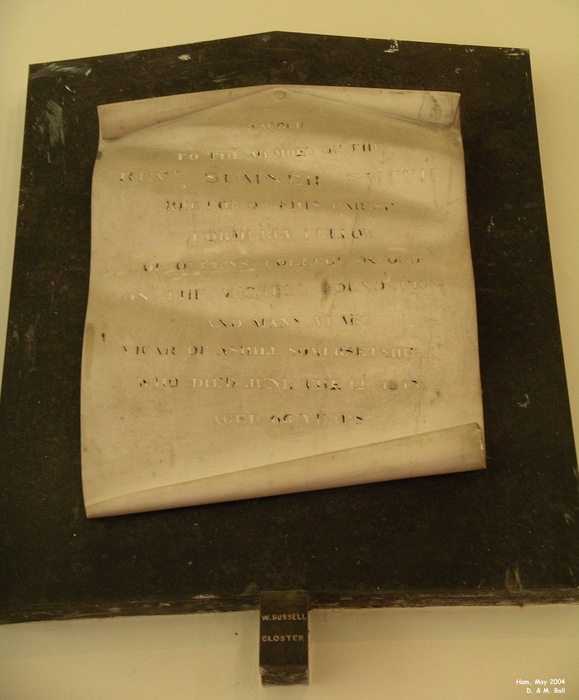 SACRED
TO THE MEMORY OF THE
REVD. SUMNER SMITH
RECTOR OF THIS PARISH
FORMERLY FELLOW
OF QUEENS COLLEGE OXFORD
ON THE FOUNDATION
AND MANY YEARS
VICAR OF ASHILL SOMERSETSHIRE
WHO DIED JUNE THE
AGED YEARS
W. BUSSELL
CLOSTER
Ham, May 2004
D. & M. Ball